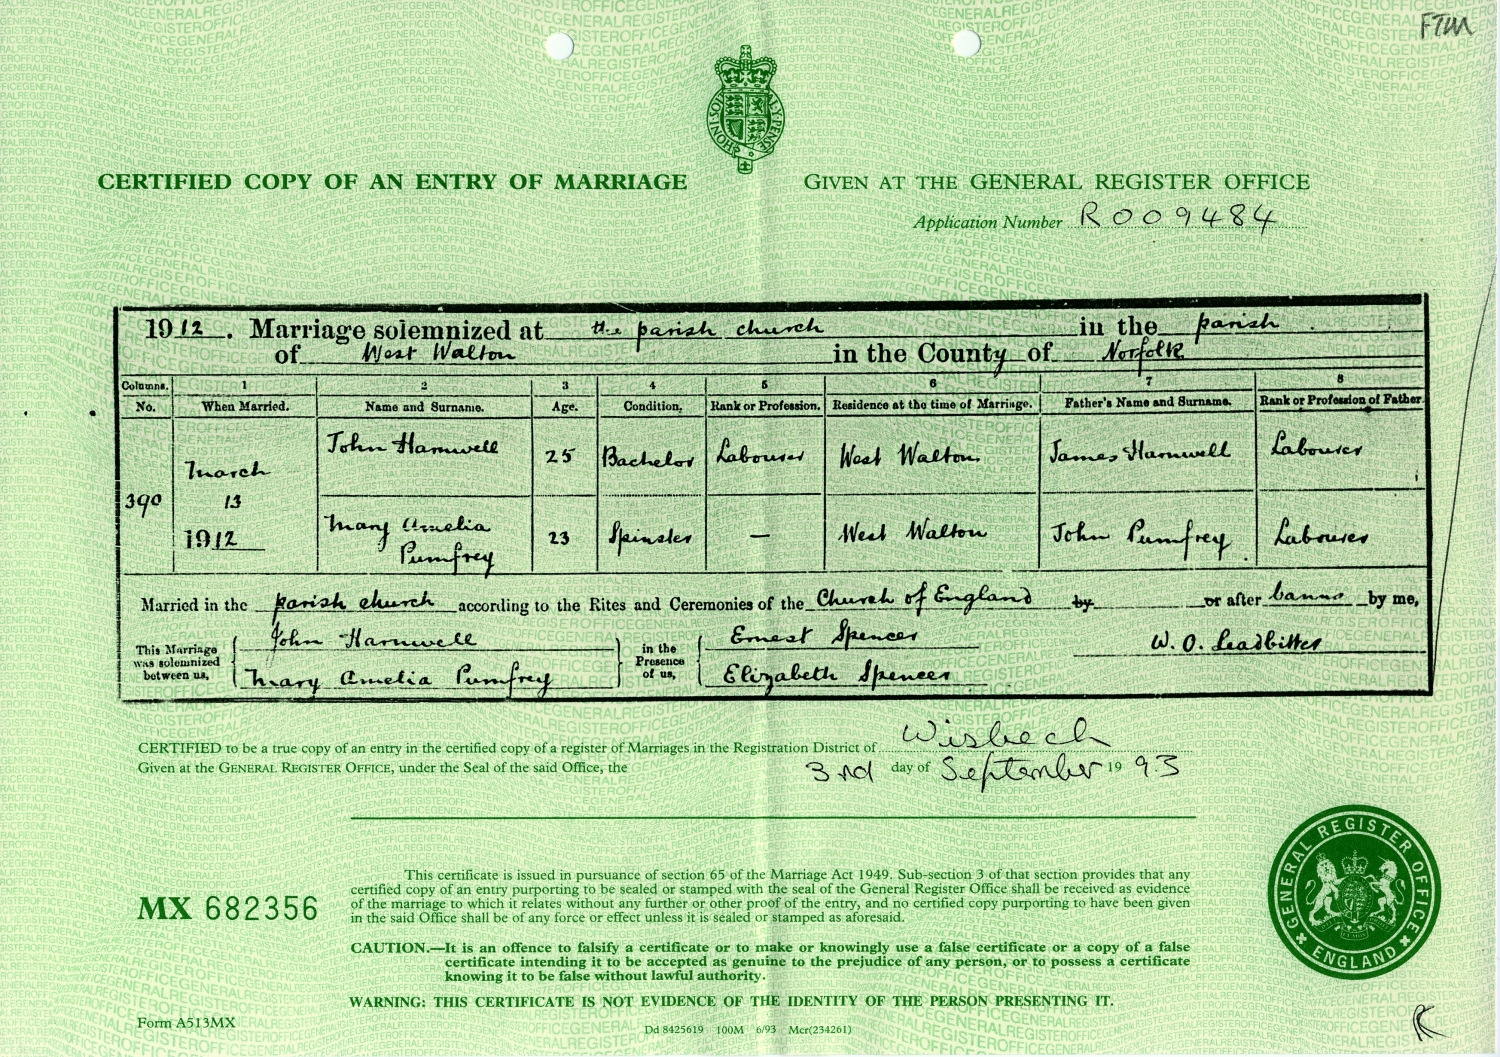 FTM
HONI·SOI ALY·PENSE
CERTIFIED COPY OF AN ENTRY OF MARRIAGE
GIVEN AT THE GENERAL REGISTER OFFICE
Application Number R009484
1912. Marriage solemnized at the parish church in the parish
of West Walton in the County of Norfolk
Columns. 1 2 3 4 5 6 7 8
No. When Married. Name and Surname. Age. Condition. Rank or Profession. Residence at the time of Marriage. Father's Name and Surname. Rank or Profession of Father.
390 March 13 1912
John Harnwell 25 Bachelor Labourer West Walton James Harnwell Labourer
Mary Amelia Pumfrey 23 Spinster — West Walton John Pumfrey Labourer
Married in the parish church according to the Rites and Ceremonies of the Church of England by or after banns by me,
This Marriage was solemnized between us, John Harnwell Mary Amelia Pumfrey in the Presence of us, Ernest Spencer Elizabeth Spencer W. O. Leadbitter
CERTIFIED to be a true copy of an entry in the certified copy of a register of Marriages in the Registration District of Wisbech
Given at the GENERAL REGISTER OFFICE, under the Seal of the said Office, the 3rd day of September 1993
MX 682356
This certificate is issued in pursuance of section 65 of the Marriage Act 1949. Sub-section 3 of that section provides that any
certified copy of an entry purporting to be sealed or stamped with the seal of the General Register Office shall be received as evidence
of the marriage to which it relates without any further or other proof of the entry, and no certified copy purporting to have been given
in the said Office shall be of any force or effect unless it is sealed or stamped as aforesaid.
CAUTION.—It is an offence to falsify a certificate or to make or knowingly use a false certificate or a copy of a false
certificate intending it to be accepted as genuine to the prejudice of any person, or to possess a certificate
knowing it to be false without lawful authority.
WARNING: THIS CERTIFICATE IS NOT EVIDENCE OF THE IDENTITY OF THE PERSON PRESENTING IT.
GENERAL REGISTER OFFICE
ENGLAND
Form A513MX
Dd 8425619 100M 6/93 Mcr(234261)